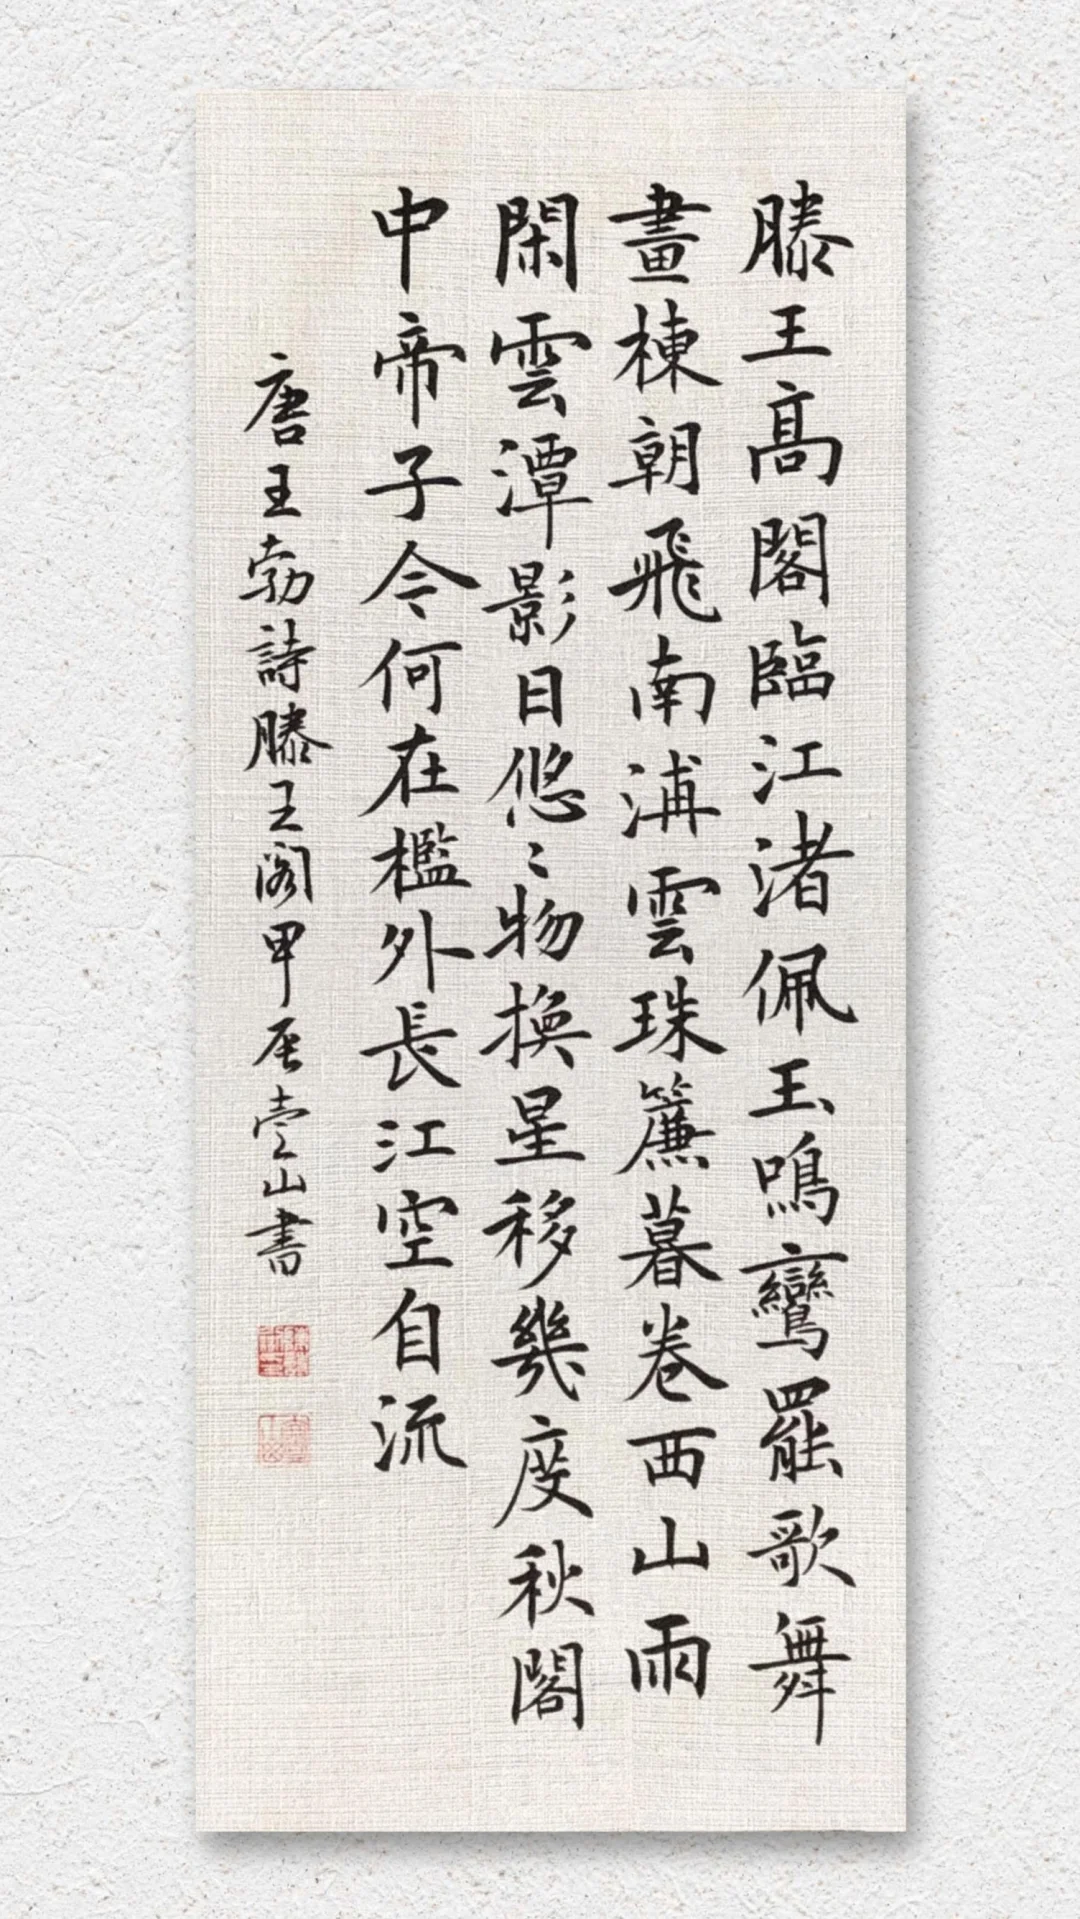 滕王高閣臨江渚佩玉鳴鸞罷歌舞
畫棟朝飛南浦雲珠簾暮卷西山雨
閑雲潭影日悠〻物換星移幾度秋閣
中帝子今何在檻外長江空自流
唐王勃詩滕王閣甲辰壹山書